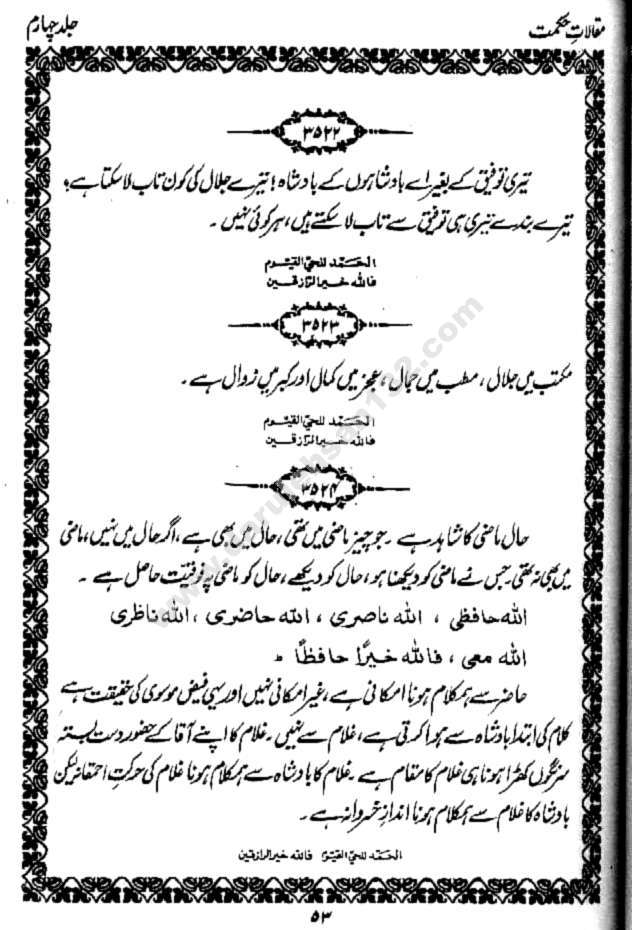 مقالاتِ حکمت
جلد چہارم
۳۵۲۲
تیری توفیق کے بغیر اے بادشاہوں کے بادشاہ! تیرے جلال کی کون تاب لا سکتا ہے؛
تیرے بندے تیری ہی توفیق سے تاب لا سکتے ہیں، ہر کوئی نہیں ۔
الحَمد للحیّ القیّوم
فاللہ خیر الرّازقین
۳۵۲۳
مکتب میں جلال، مطب میں جمال، عجز میں کمال اور کبر میں زوال ہے ۔
الحَمد للحیّ القیّوم
فاللہ خیر الرّازقین
۳۵۲۴
حال ماضی کا شاہد ہے ۔ جو چیز ماضی میں تھی، حال میں بھی ہے، اگر حال میں نہیں، ماضی
میں بھی نہ تھی۔ جس نے ماضی کو دیکھنا ہو، حال کو دیکھے، حال کو ماضی پہ فوقیت حاصل ہے ۔
اللہ حافظی ، اللہ ناصری ، اللہ حاضری ، اللہ ناظری
اللہ معی ، فاللہ خیرًا حافظًا ط
حاضر سے ہمکلام ہونا امکانی ہے، غیر امکانی نہیں اور یہی فیض موسوی کی حقیقت ہے
کلام کی ابتدا بادشاہ سے ہوا کرتی ہے، غلام سے نہیں ۔ غلام کا اپنے آقا کے حضور دست بستہ
سرنگوں کھڑا ہونا ہی غلام کا مقام ہے ۔ غلام کا بادشاہ سے ہمکلام ہونا غلام کی حرکتِ احمقانہ لیکن
بادشاہ کا غلام سے ہمکلام ہونا اندازِ خسروانہ ہے ۔
الحَمد للحیّ القیّوم فاللہ خیر الرازقین
۵۳
www.darulehsan132.com